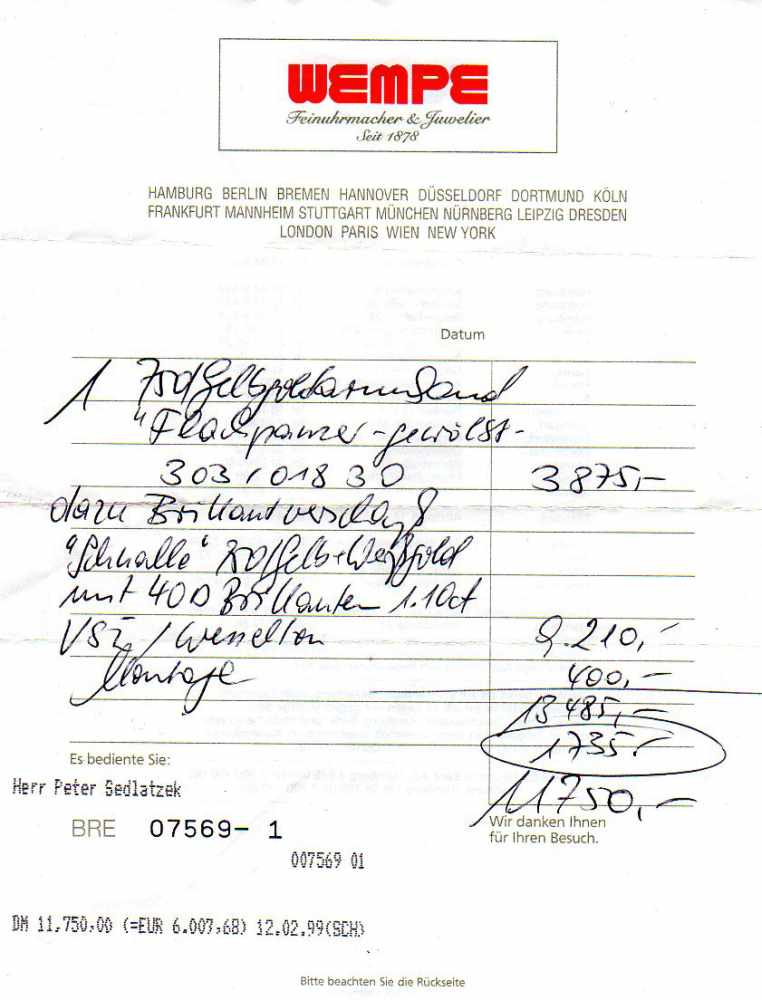 WEMPE
Feinuhrmacher & Juwelier
Seit 1878
HAMBURG BERLIN BREMEN HANNOVER DÜSSELDORF DORTMUND KÖLN
FRANKFURT MANNHEIM STUTTGART MÜNCHEN NÜRNBERG LEIPZIG DRESDEN
LONDON PARIS WIEN NEW YORK
Datum
1 750/Gelbgoldarmband
"Flachpanzer-gewölbt-
303/01830 3875,-
dazu Brillantverschluß
"Schnalle" 750/Gelb+Weißgold
mit 40 Brillanten 1.10ct
VSI/Wesselton 9.210,-
Montage 400,-
13485,-
1735.-
Es bediente Sie:
Herr Peter Sedlatzek
11750,-
BRE 07569- 1
Wir danken Ihnen
für Ihren Besuch.
007569 01
DM 11,750,00 (=EUR 6.007,68) 12.02.99(SCH)
Bitte beachten Sie die Rückseite